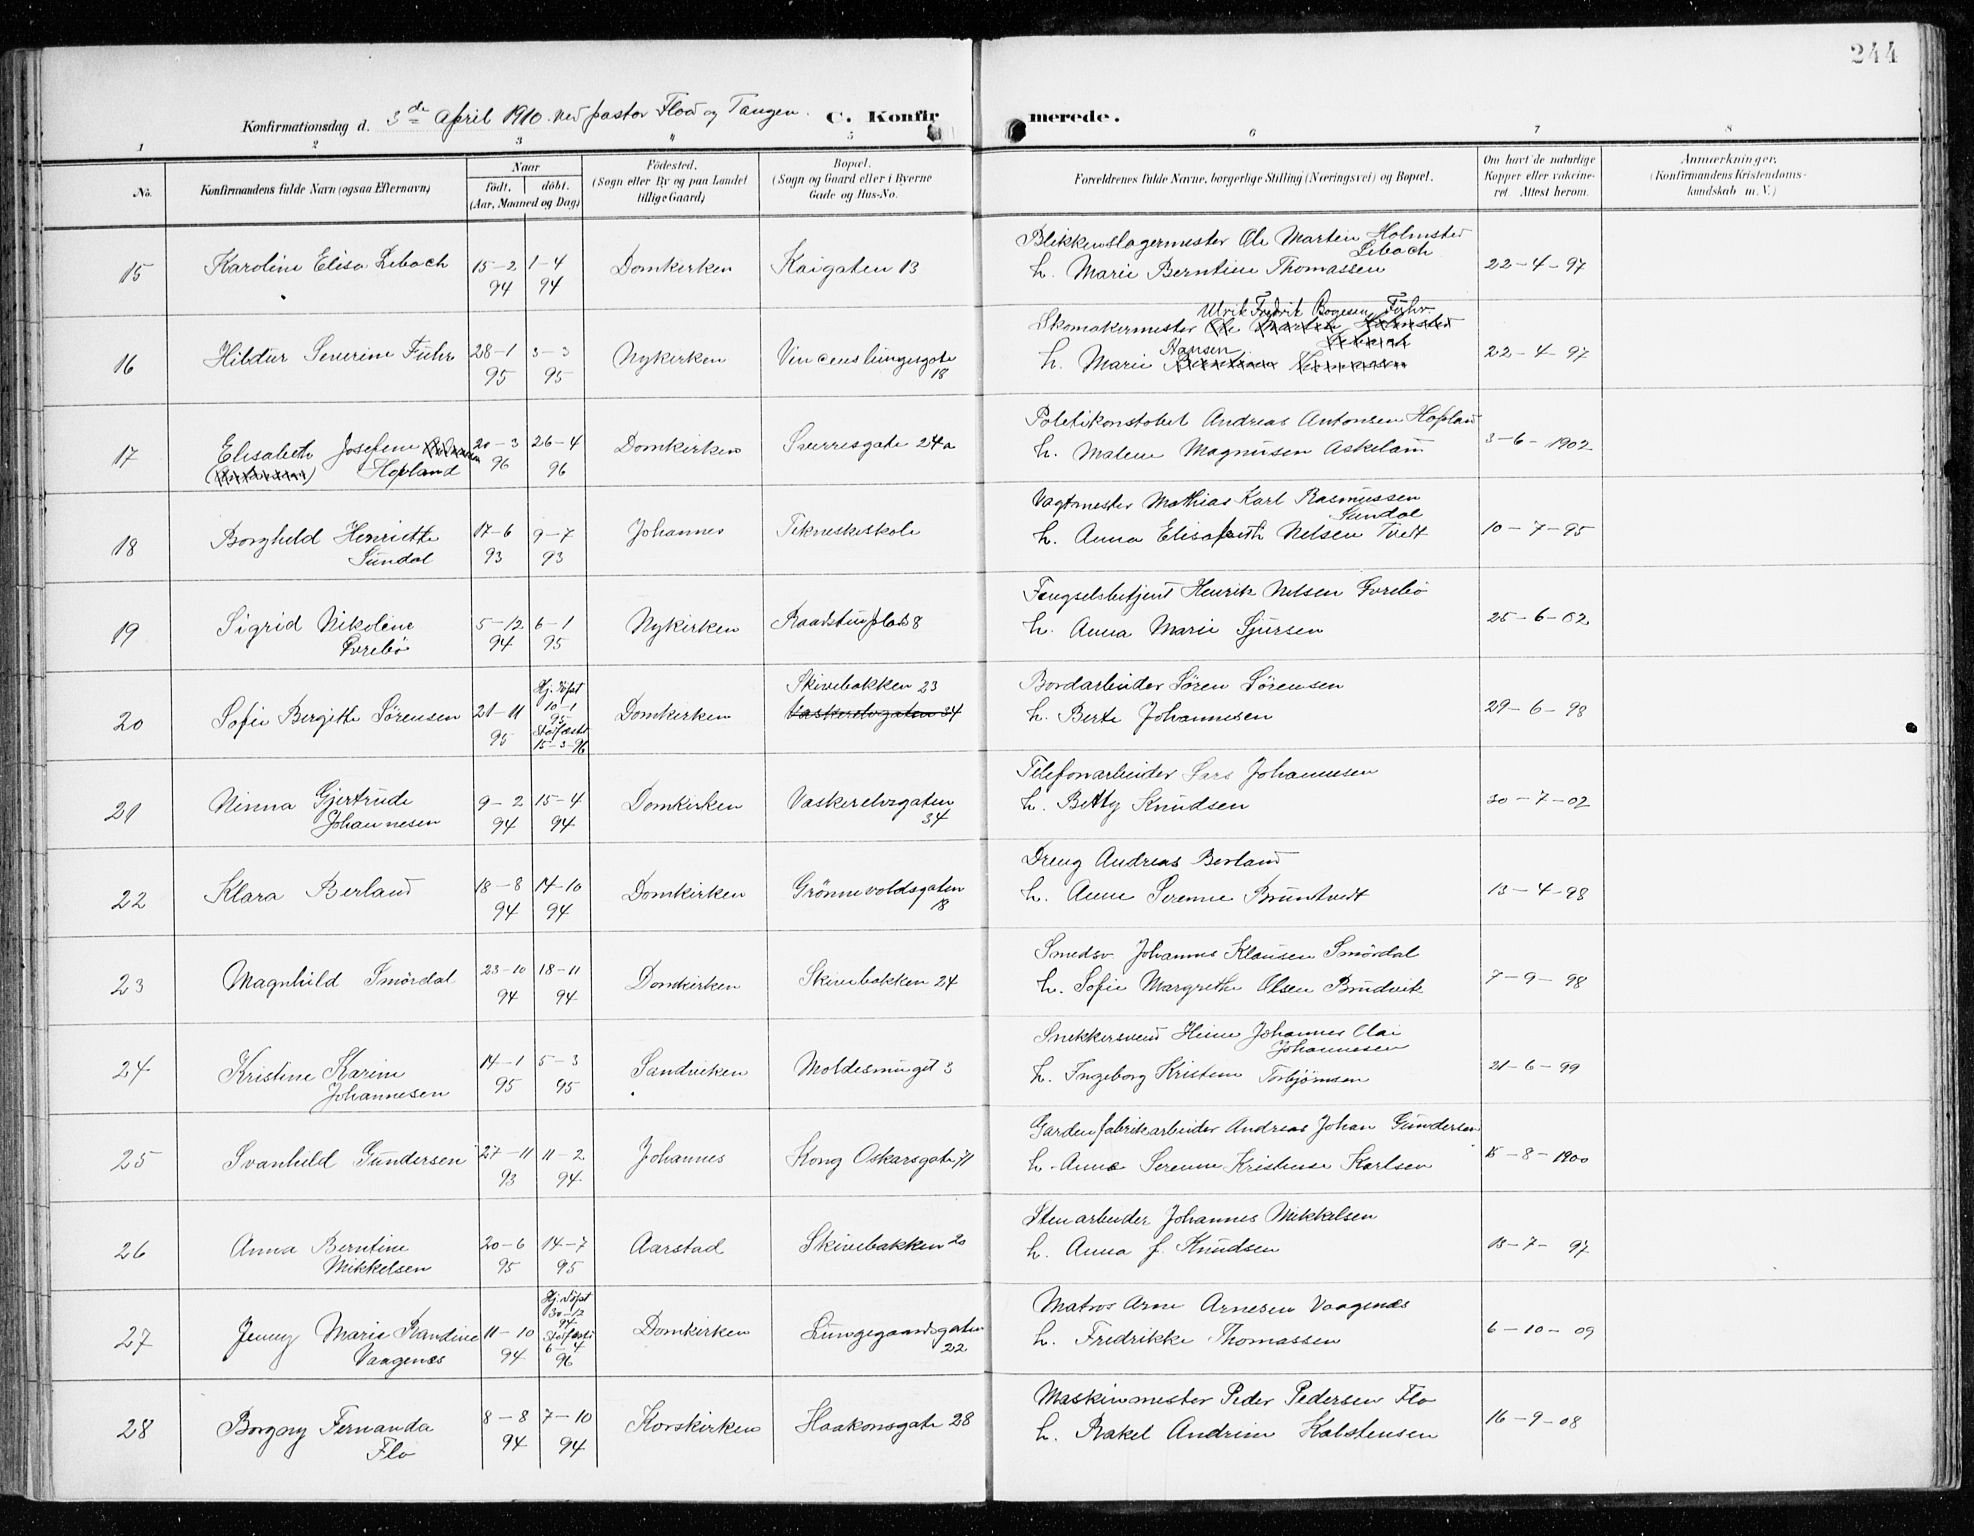 244
Konfirmationsdag d. 3de April 1910 ved pastor Flod og Tangen. C. Konfirmerede.
1 2 3 4 5 6 7 8
No. Konfirmandens fulde Navn (ogsaa Efternavn)
Naar
født. døbt.
(Aar, Maaned og Dag)
Fødested.
(Sogn eller By og paa Landet
tillige Gaard)
Bopæl.
(Sogn og Gaard eller i Byerne
Gade og Hus-No.
Forældrenes fulde Navne, borgerlige Stilling (Næringsvei) og Bopæl.
Om havt de naturlige
Kopper eller vakcine-
ret. Attest herom.
Anmærkninger.
(Konfirmandens Kristendoms-
kundskab m. V.)
15 Karoline Elisa Libach 15-2 94 1-4 94 Domkirken Kaigaten 13
Blikkenslagermester Ole Martin Holmsted
Libach
h. Marie Berntine Thomassen 22-4-97
16 Hildur Severine Führ 28-1 95 3-3 95 Nykirken Vincenslungesgate 18
Ulrik Fredrik Bogesen Führ
Skomakermester
Hansen
h. Marie 22-4-97
17 Elisabeth Josefine
Hopland 20-3 96 26-4 96 Domkirken Sverresgate 24a
Politikonstabel Andreas Antonsen Hopland
h. Malene Magnusen Askeland 3-6-1902
18 Borghild Henriette
Sundal 17-6 93 9-7 93 Johannes Tekniskeskole
Vagtmester Mathias Karl Rasmussen
Sundal
h. Anna Elisabeth Nelsen Tvedt 10-7-95
19 Sigrid Nikoline
Evrebö 5-12 94 6-1 95 Nykirken Raadstuplads 8
Fengselsbetjent Henrik Nelsen Evrebö
h. Anna Marie Sjursen 25-6-02
20 Sofie Bergitte Sörensen 21-11 95 Hj. döpt
10-1
95
Stadfæstet
15-3-96 Domkirken Skivebakken 23
Vaskerelvgaten 34
Bordarbeider Sören Sörensen
h. Berte Johannesen 29-6-98
21 Ninna Gjertrude
Johannesen 9-2 94 15-4 94 Domkirken Vaskerelvgaten
34
Telefonarbeider Lars Johannesen
h. Betty Knudsen 30-7-02
22 Klara Berland 18-8 94 14-10 94 Domkirken Grönnevoldsgaten
18
Dreng Andreas Berland
h. Anne Serene Bruntvedt 13-4-98
23 Magnhild Smördal 23-10 94 18-11 94 Domkirken Skivebakken 24
Smedsv. Johannes Klausen Smördal
h. Sofie Margrethe Olsen Brudvik 7-9-98
24 Kristine Karine
Johannesen 14-1 95 5-3 95 Sandviken Moldesmuget 3
Snekkersvend Heine Johannes Olai
Johannesen
h. Ingeborg Kristine Torbjörnsen 21-6-99
25 Svanhild Gundersen 27-11 93 11-2 94 Johannes Kong Oskarsgate 71
Gardenfabrikarbeider Andreas Johan Gundersen
h. Anna Serenne Kristense Karlsen 15-8-1900
26 Anna Berntine
Mikkelsen 20-6 95 14-7 95 Aarstad Skivebakken 20
Stenarbeider Johannes Mikkelsen
h. Anna J. Knudsen 15-7-97
27 Jenny Marie Randine
Vaagenes 11-10 94 Hj. döpt
30-12
94
Stadfæstet
6-4
96 Domkirken Lungegaardsgaten
22
Matros Arne Arnesen Vaagenæs
h. Fredrikke Thomassen 6-10-09
28 Borgny Fernanda
Flo 8-8 94 7-10 94 Korskirken Haakonsgate 28
Maskinmester Peder Pedersen Flo
h. Rakel Andrine Kolstensen 16-9-08